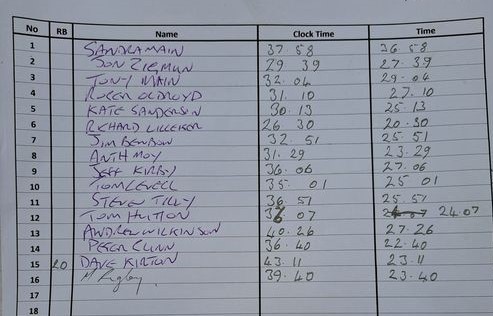 No RB Name Clock Time Time
1 SANDRA MAIN 37 58 36 58
2 JON ZIGMUN 29 39 27.39
3 TONY MAIN 32.04 29.04
4 ROGER OLDROYD 31.10 27.10
5 KATE SANDERSON 30.13 25 13
6 RICHARD LILLEKER 26 30 20.30
7 JIM BENBOW 32 51 25.51
8 ANTH MOY 31.29 23.29
9 JEFF KIRBY 36.06 27.06
10 TOM LEVELL 35. 01 25 01
11 STEVE TILLY 36 51 25.51
12 TOM HUTTON 36 07 24 07
13 ANDREW WILKINSON 40.26 27-26
14 PETER CUNN 36.40 22.40
15 20 DAVE KIRTON 43.11 23.11
16 39.40 23.40
17
18